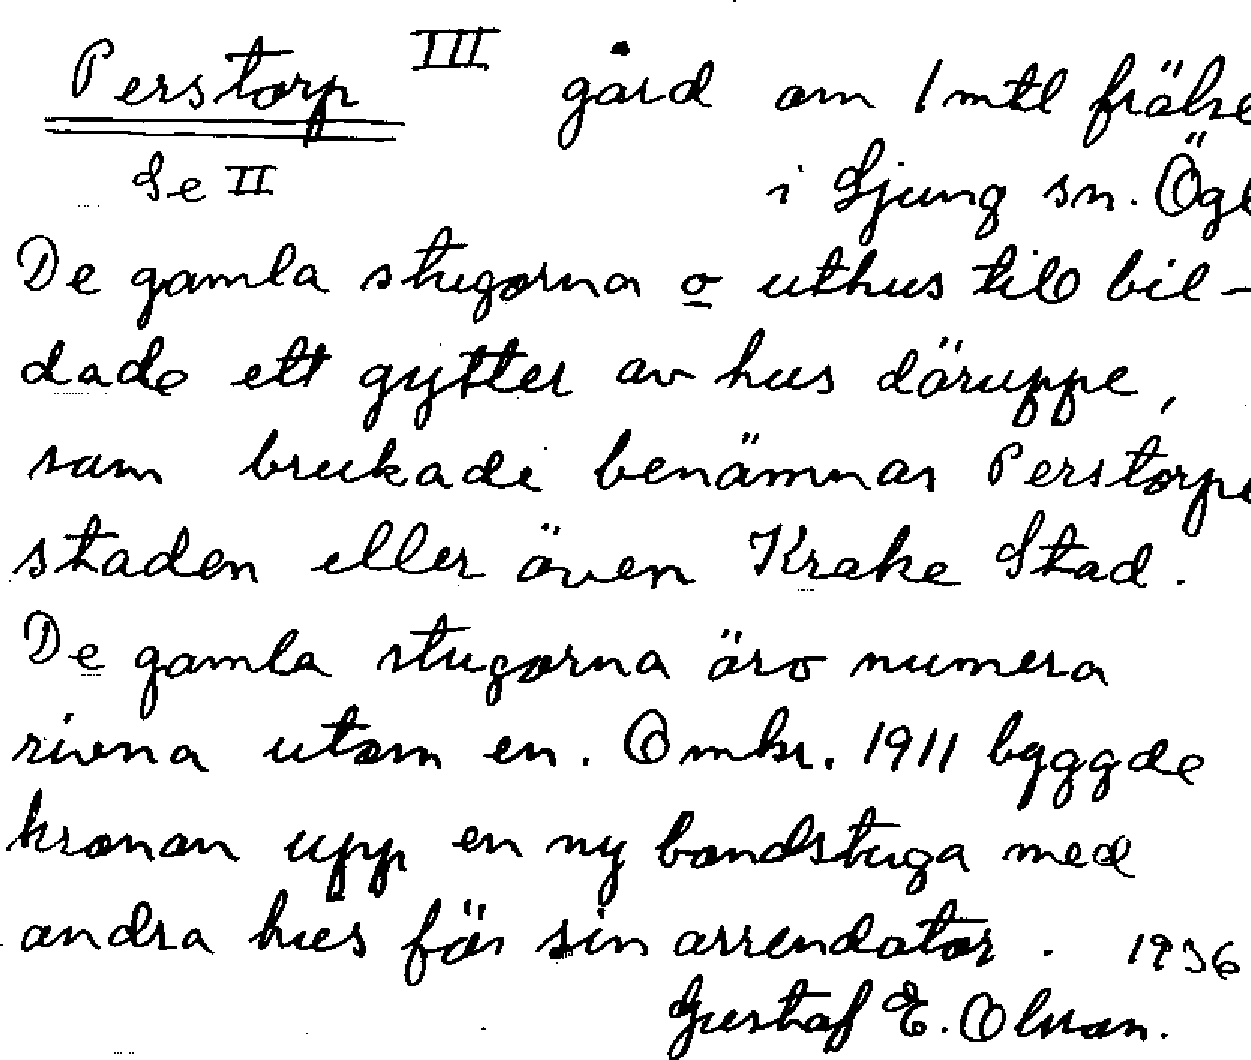 Perstorp III gård om 1 mtl frälse
Se II i Ljung sn. Ögl
De gamla stugorna o uthus till bil-
dade ett gytter av hus däruppe,
som brukade benämnas Perstorps
staden eller även Krake Stad.
De gamla stugorna äro numera
rivna utom en. Omkr. 1911 byggde
kronan upp en ny bondstuga med
andra hus för sin arrendator. 1936
Gustaf E. Olsson.